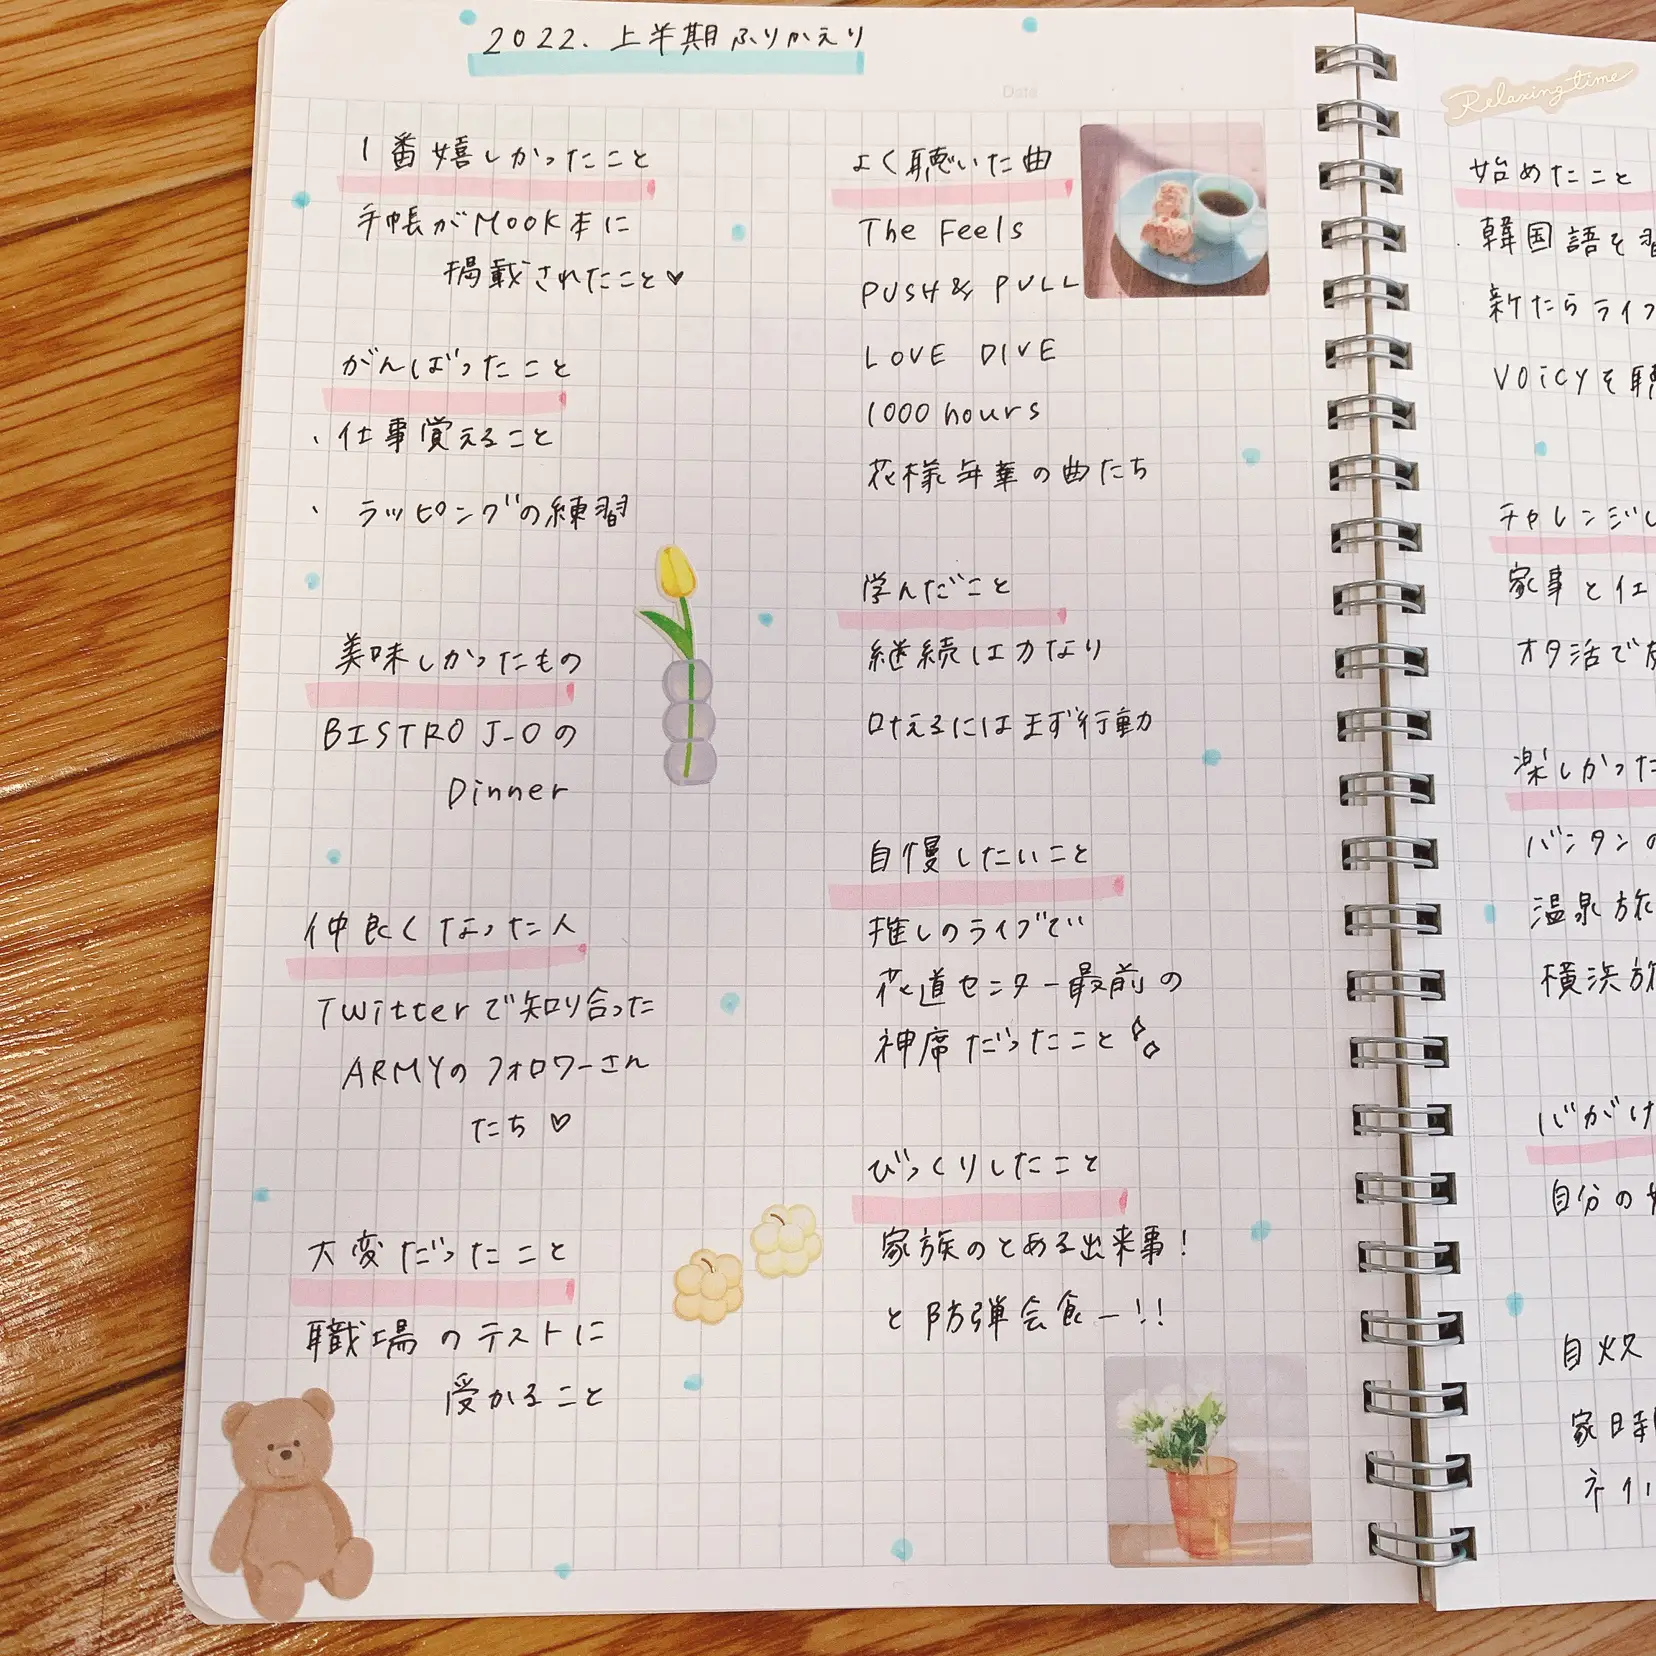 2022. 上半期ふりかえり
Date
1番嬉しかったこと
手帳がMOOK本に
掲載されたこと♥
がんばったこと
・仕事覚えること
・ラッピングの練習
美味しかったもの
BISTRO J-Oの
Dinner
仲良くなった人
Twitterで知り合った
ARMYのフォロワーさん
たち♡
大変だったこと
職場のテストに
受かること
よく聴いた曲
The Feels
PUSH & PULL
LOVE DIVE
1000 hours
花様年華の曲たち
学んだこと
継続は力なり
叶えるにはまず行動
自慢したいこと
推しのライブで
花道センター最前の
神席だったこと
びっくりしたこと
家族のとある出来事!
と防弾会食ー!!
Relaxing time
始めたこと
・韓国語を
新たなライ
Voicyを聴
チャレンジし
家事と仕
オタ活で
楽しかった
バンタンの
温泉旅
横浜旅
心がけ
自分の
自炊
家時
ネイル